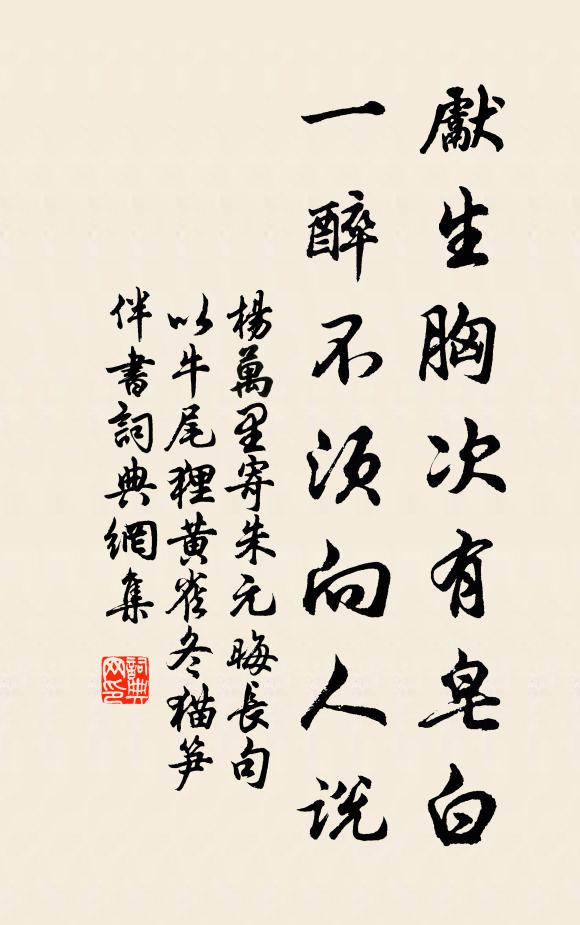 獻生胸次有皂白
一醉不須向人說
楊萬里寄朱元晦長句
以牛尾狸黃雀冬猫笋
伴書詞典網集
詞典
网印